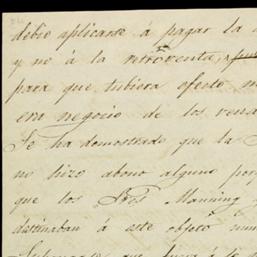 debio aplicarse á pagar la
y no á la retroventa,
para que tubiera efecto
era negocio de los
Se ha demostrado que la
no hizo abono alguno
que los Sres Manning
destinaban á este objeto